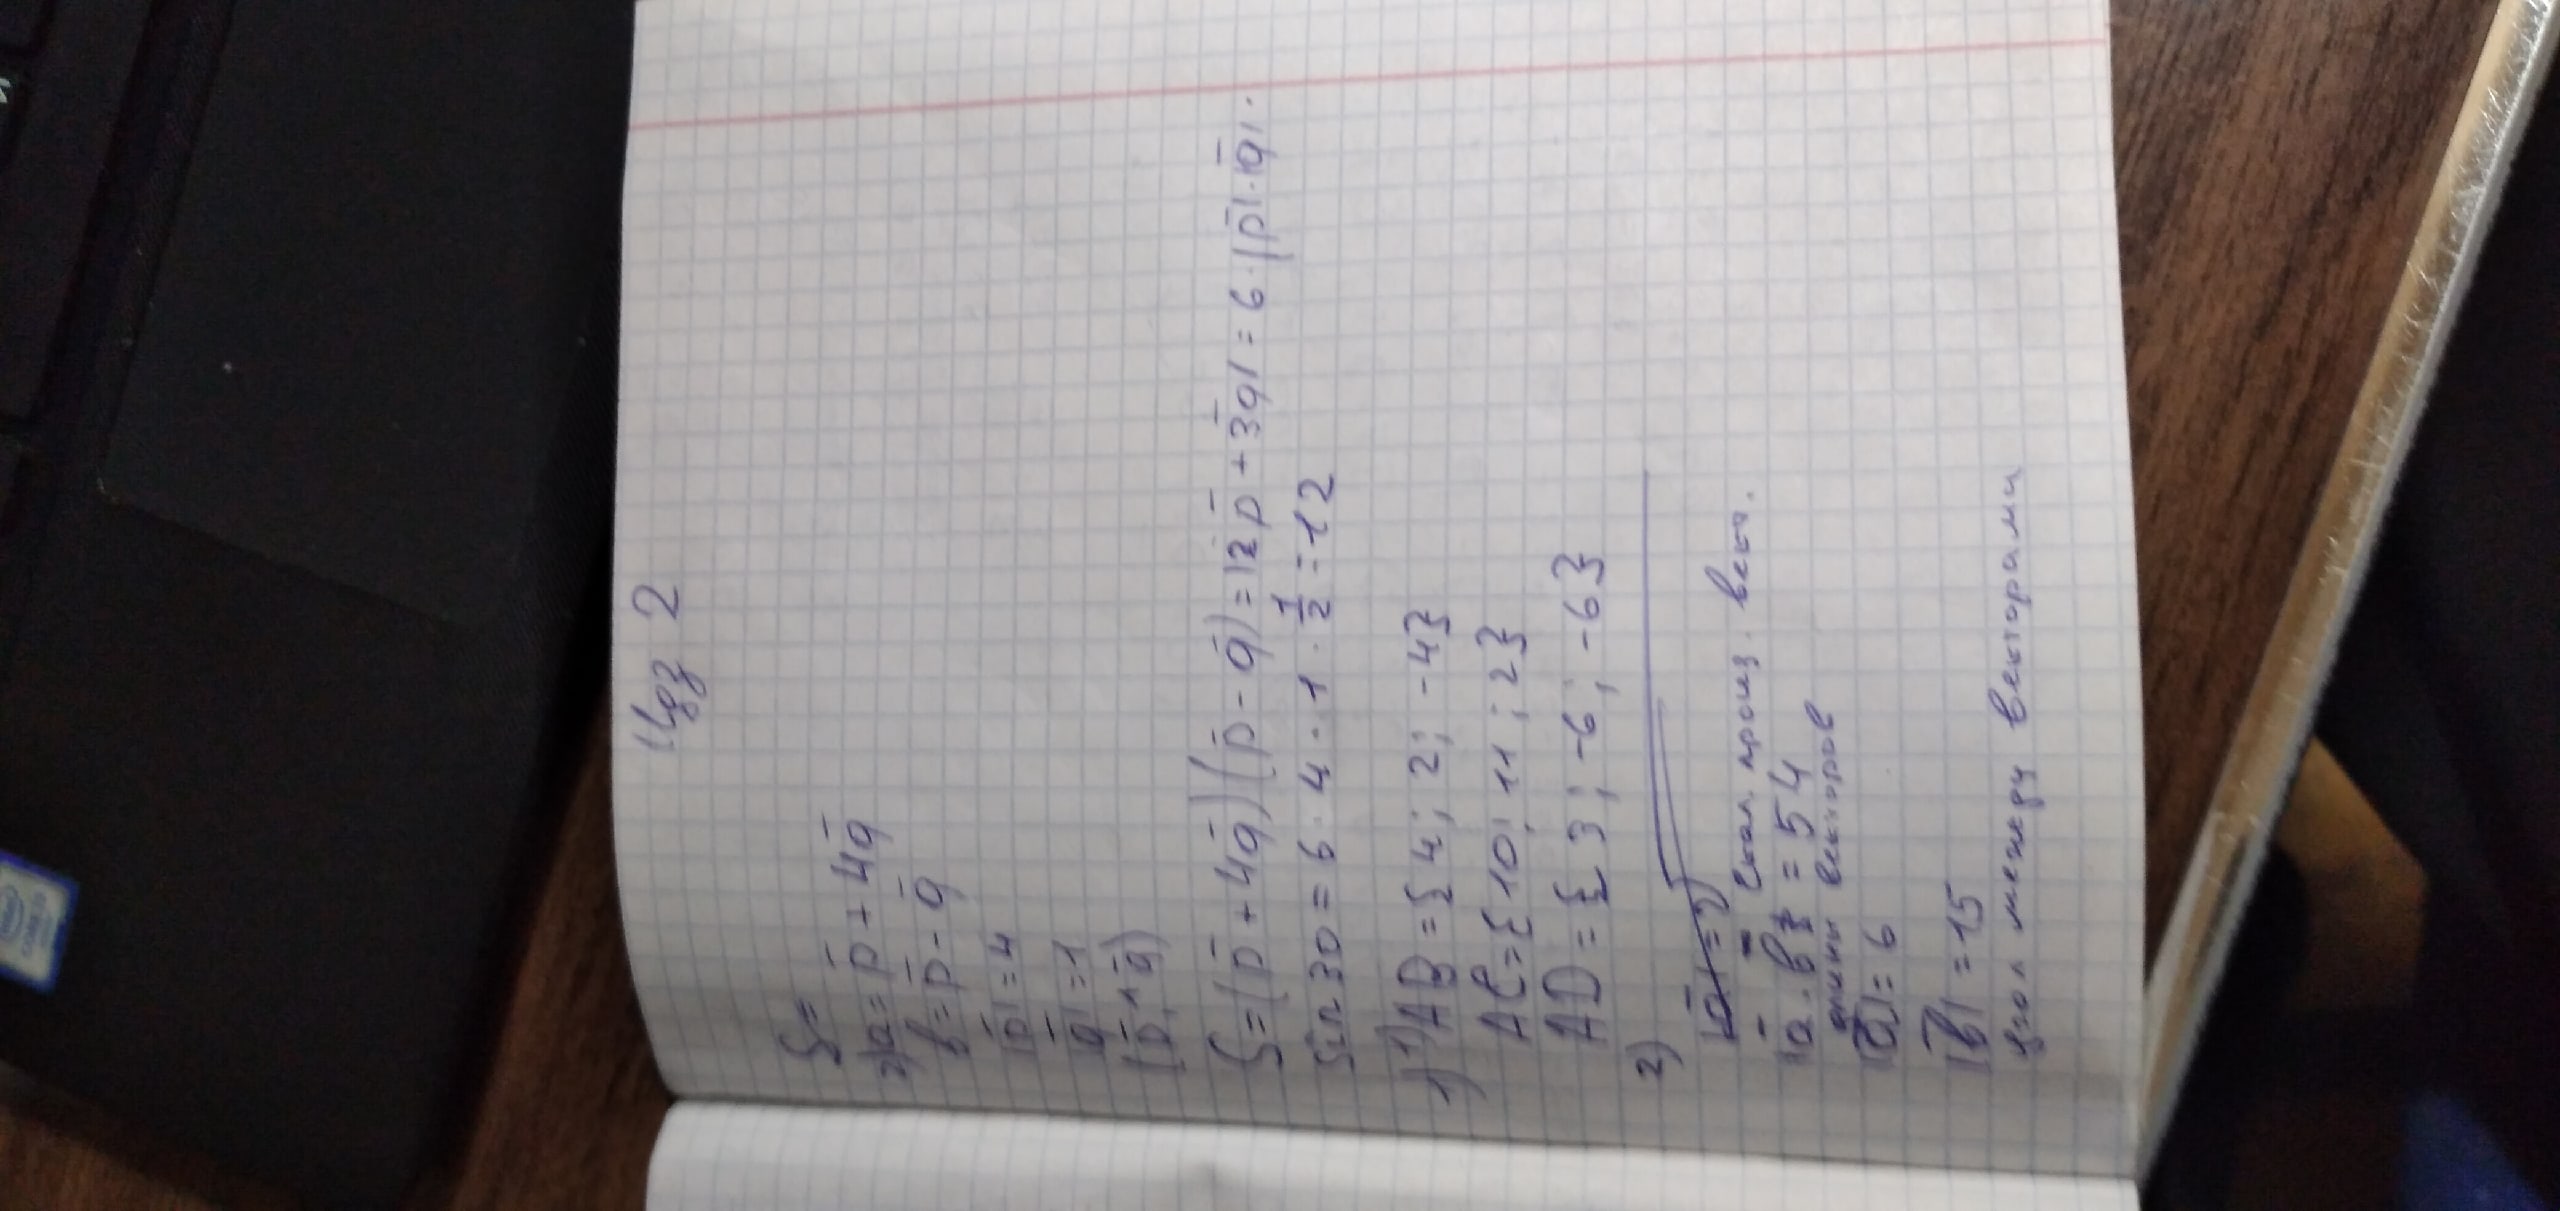 Идз 2
S=
2) a̅ = p̅ + 4q̅
b̅ = p̅ - q̅
|p̅| = 4
|q̅| = 1
(p̅ ^ q̅)
S = (p̅ + 4q̅)(p̅ - q̅) = |2p̅ + 3q̅| = 6 · |p̅| · |q̅| ·
sin 30 = 6 · 4 · 1 · 1/2 = 12
1) 1) AB = {4; 2; -4}
AC = {10; 11; 2}
AD = {3; -6; -6}
2)
Скал. произ. век.
a̅ · b̅ = 54
длины векторов
|a̅| = 6
|b̅| = 15
Угол между векторами